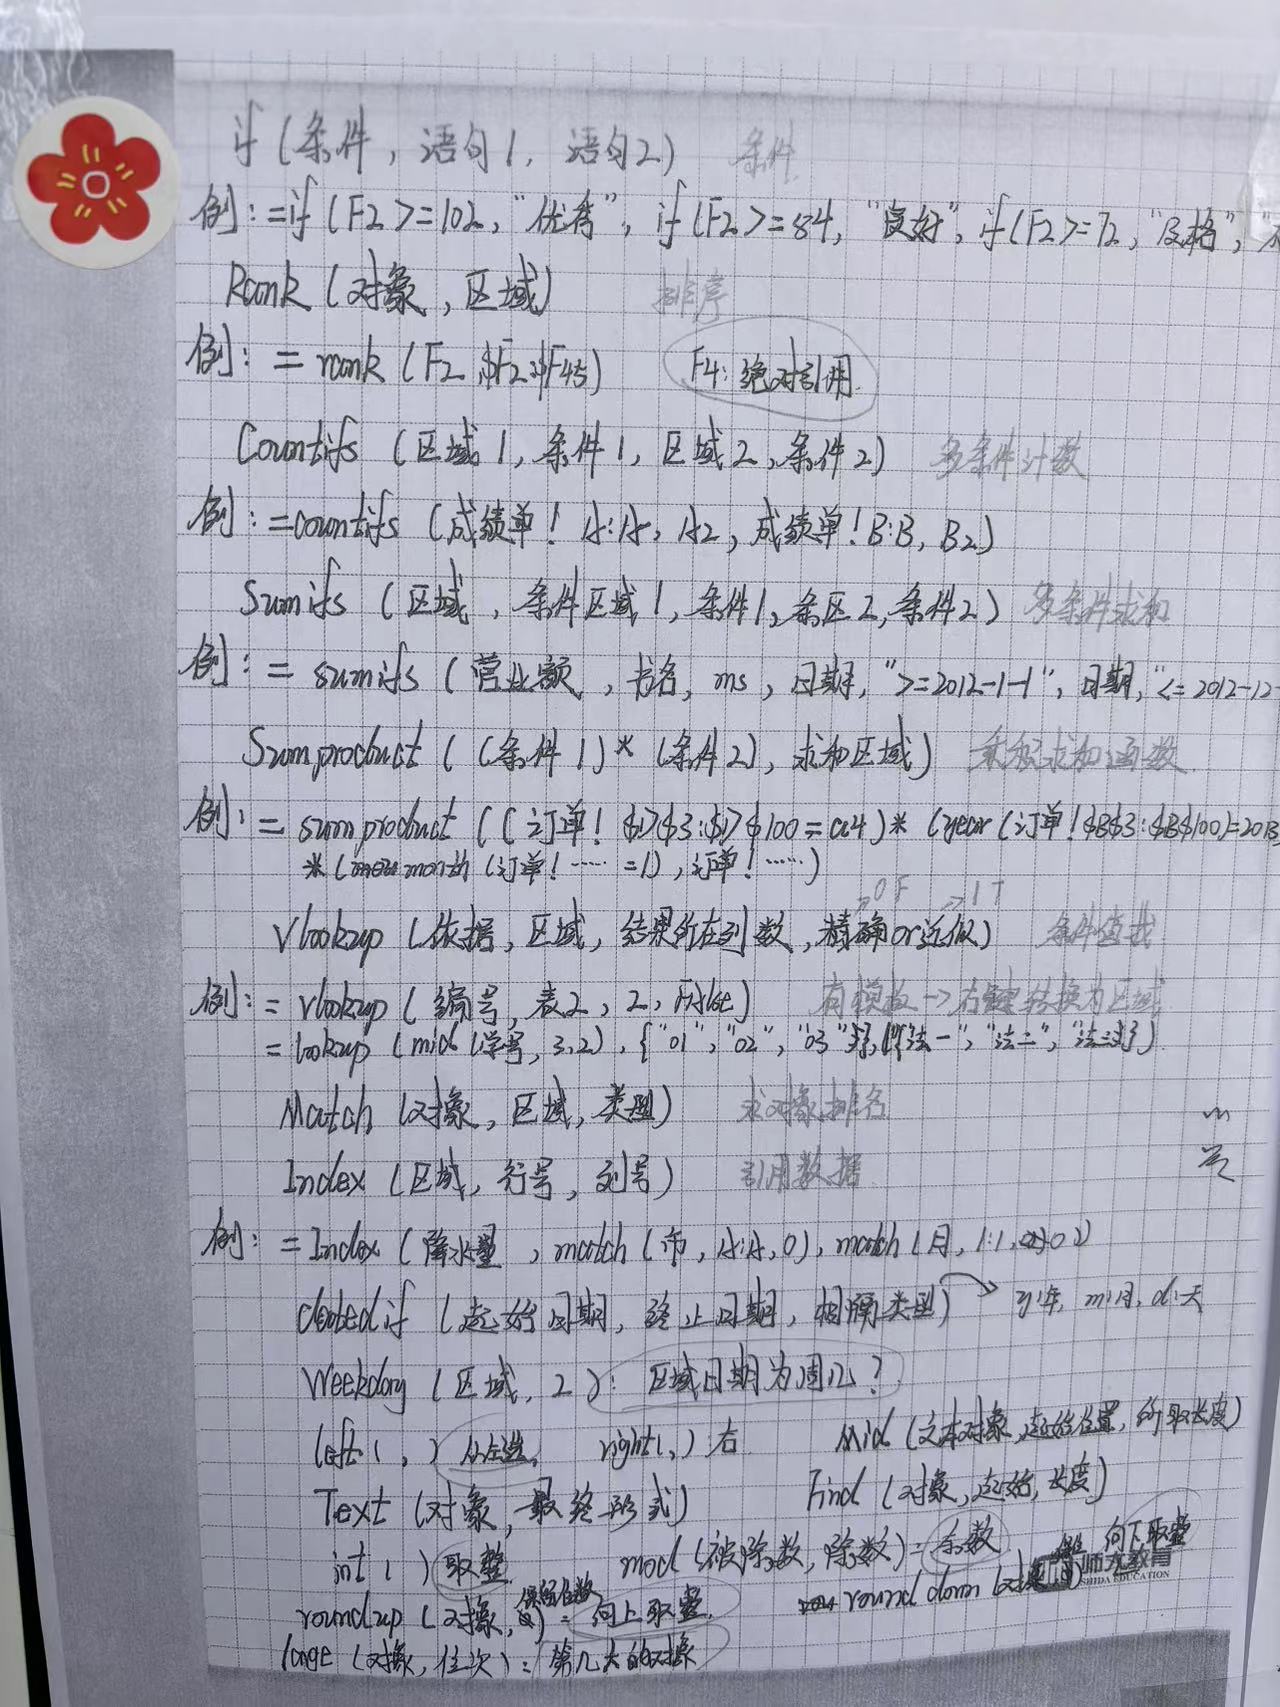 if(条件,语句1,语句2) 条件
例:=if(F2>=102,"优秀",if(F2>=84,"良好",if(F2>=72,"及格","不
Rank(对象,区域) 排序
例:=rank(F2,$F2:$F45) F4:绝对引用
Countifs(区域1,条件1,区域2,条件2) 多条件计数
例:=countifs(成绩单!A:A,A2,成绩单!B:B,B2)
Sumifs(区域,条件区域1,条件1,条区2,条件2) 多条件求和
例:=sumifs(营业额,书名,ms,日期,">=2012-1-1",日期,"<=2012-12-
Sumproduct((条件1)*(条件2),求和区域) 乘积求和函数
例:=sumproduct((订单!$D$3:$D$100=a4)*(year(订单!$B$3:$B$100)=2013)
*(month(订单!……=1),订单!……)
→0F →1T
Vlookup(依据,区域,结果所在列数,精确or近似) 条件值找
例:=vlookup(编号,表2,2,False) 有模板→右键转换为区域
=lookup(mid(学号,3,2),{"01","02","03"},{"法一","法二","法三"})
Match(对象,区域,类型) 求对象排名
Index(区域,行号,列号) 引用数据
例:=Index(降水量,match(市,A:A,0),match(月,1:1,0))
datedif(起始日期,终止日期,相隔类型)→y:年,m:月,d:天
Weekday(区域,2):区域日期为周几?
left(,)从左选, right(,)右 Mid(文本对象,起始位置,所取长度)
Text(对象,最终形式) Find(对象,起始,长度)
int()取整 mod(被除数,除数)=余数
roundup(对象,保留位数)=向上取整. rounddown(对象 向下取整
师大教育
SHIDA EDUCATION
large(对象,位次):第几大的对象